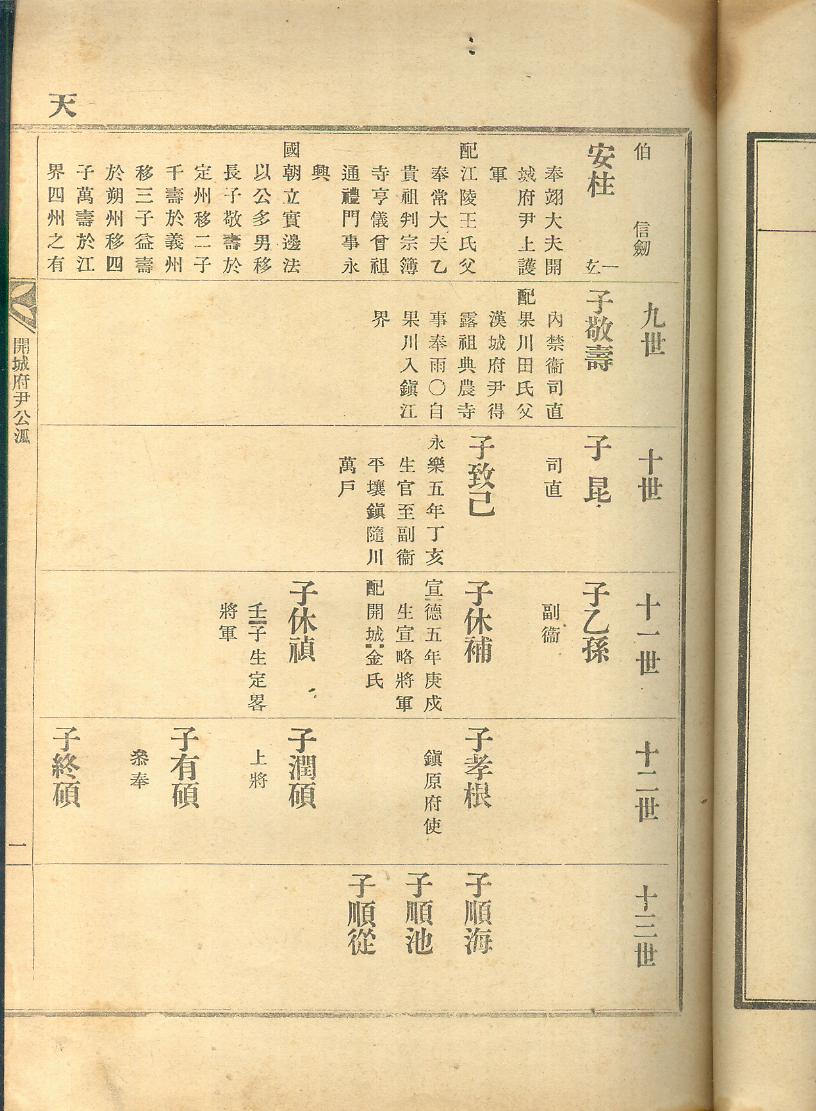 天
伯 信劒
安柱
奉翊大夫開
城府尹上護
軍
配江陵王氏父
奉常大夫乙
貴祖判宗簿
寺亨儀曾祖
通禮門事永
興
國朝立實邊法
以公多男移
長子敬壽於
定州移二子
千壽於義州
移三子益壽
於朔州移四
子萬壽於江
界四州之有
九世
子敬壽
內禁衞司直
配果川田氏父
漢城府尹得
露祖典農寺
事奉雨〇自
果川入鎭江
界
十世
子昆
司直
子致己
永樂五年丁亥
生官至副衞
平壤鎭隨川
萬戶
十一世
子乙孫
副衞
子休補
宣德五年庚戌
生宣略將軍
配開城金氏
子休禎
壬子生定畧
將軍
十二世
子孝根
鎭原府使
子潤碩
上將
子有碩
叅奉
子終碩
十三世
子順海
子順池
子順從
開城府尹公派
一